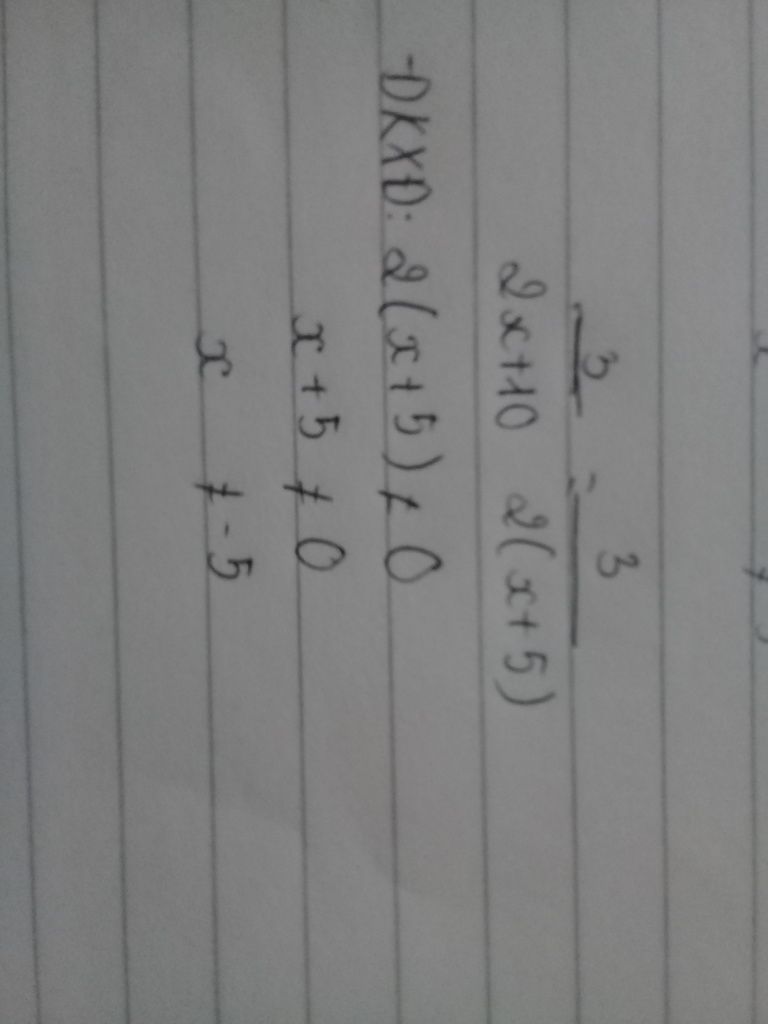 3 3
— = —
2x+10 2(x+5)
-DKXD: 2(x+5) ≠ 0
x+5 ≠ 0
x ≠ -5